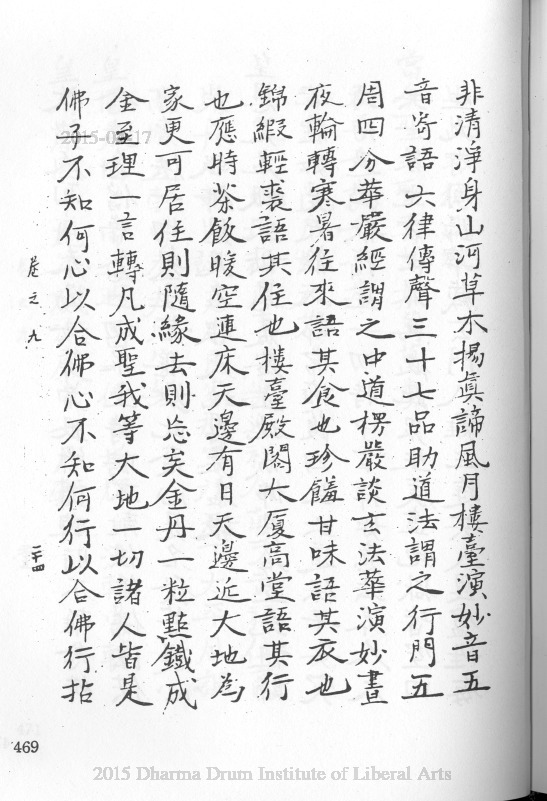 非清淨身山河草木揚眞諦風月樓臺演妙音五
音寄語六律傳聲三十七品助道法謂之行門五
周四分華嚴經謂之中道楞嚴談玄法華演妙晝
夜輪轉寒暑往來語其食也珍饈甘味語其衣也
錦緞輕裘語其住也樓臺殿閣大厦高堂語其行
也應時茶飯暖空連床天邊有日天邊近大地為
家更可居住則隨緣去則忘矣金丹一粒點鐵成
金至理一言轉凡成聖我等大地一切諸人皆是
佛子不知何心以合佛心不知何行以合佛行拈
卷之九
二十四
469
2015 Dharma Drum Institute of Liberal Arts